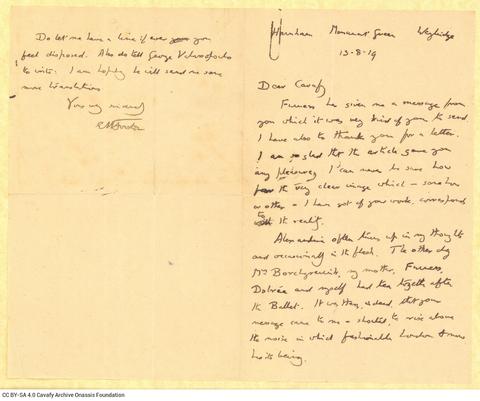 Harnham Monument Green Weybridge
13-8-19
Dear Cavafy
Furness has given me a message from
you which it was very kind of you to send
I have also to thank you for a letter.
I am so glad that the article gave you
any pleasure. I can never be sure how
far the very clear image which – somehow
or other – I have got of your work, corresponds
to the reality.
Alexandria often turns up in my thoughts
and occasionally in the flesh. The other day
Mrs Borchgrevink, my mother, Furness,
Dobrée and myself had tea together after
the Ballet. It was then, indeed, that your
message came to me – shouted, to rise above
the noise in which fashionable London
has its being.
Do let me have a line if ever you
feel disposed. Also do tell George Valassopoulo
to write: I am hoping he will send me some
more translations
Yours very sincerely
EMForster
CC BY-SA 4.0 Cavafy Archive Onassis Foundation